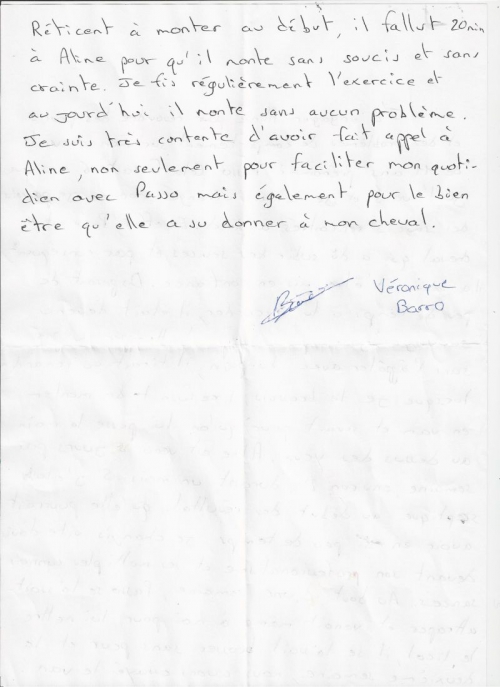 Réticent à monter au début, il fallut 20min
à Aline pour qu'il monte sans soucis et sans
crainte. Je fis régulièrement l'exercice et
aujourd'hui il monte sans aucun problème.
Je suis très contente d'avoir fait appel à
Aline, non seulement pour faciliter mon quoti-
dien avec Passo mais également pour le bien
être qu'elle a su donner à mon cheval.
Véronique
Barro